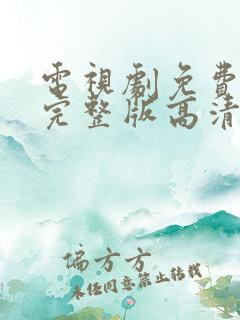 電視劇免費
完整版高清
偏方方
未經同意禁止轉載